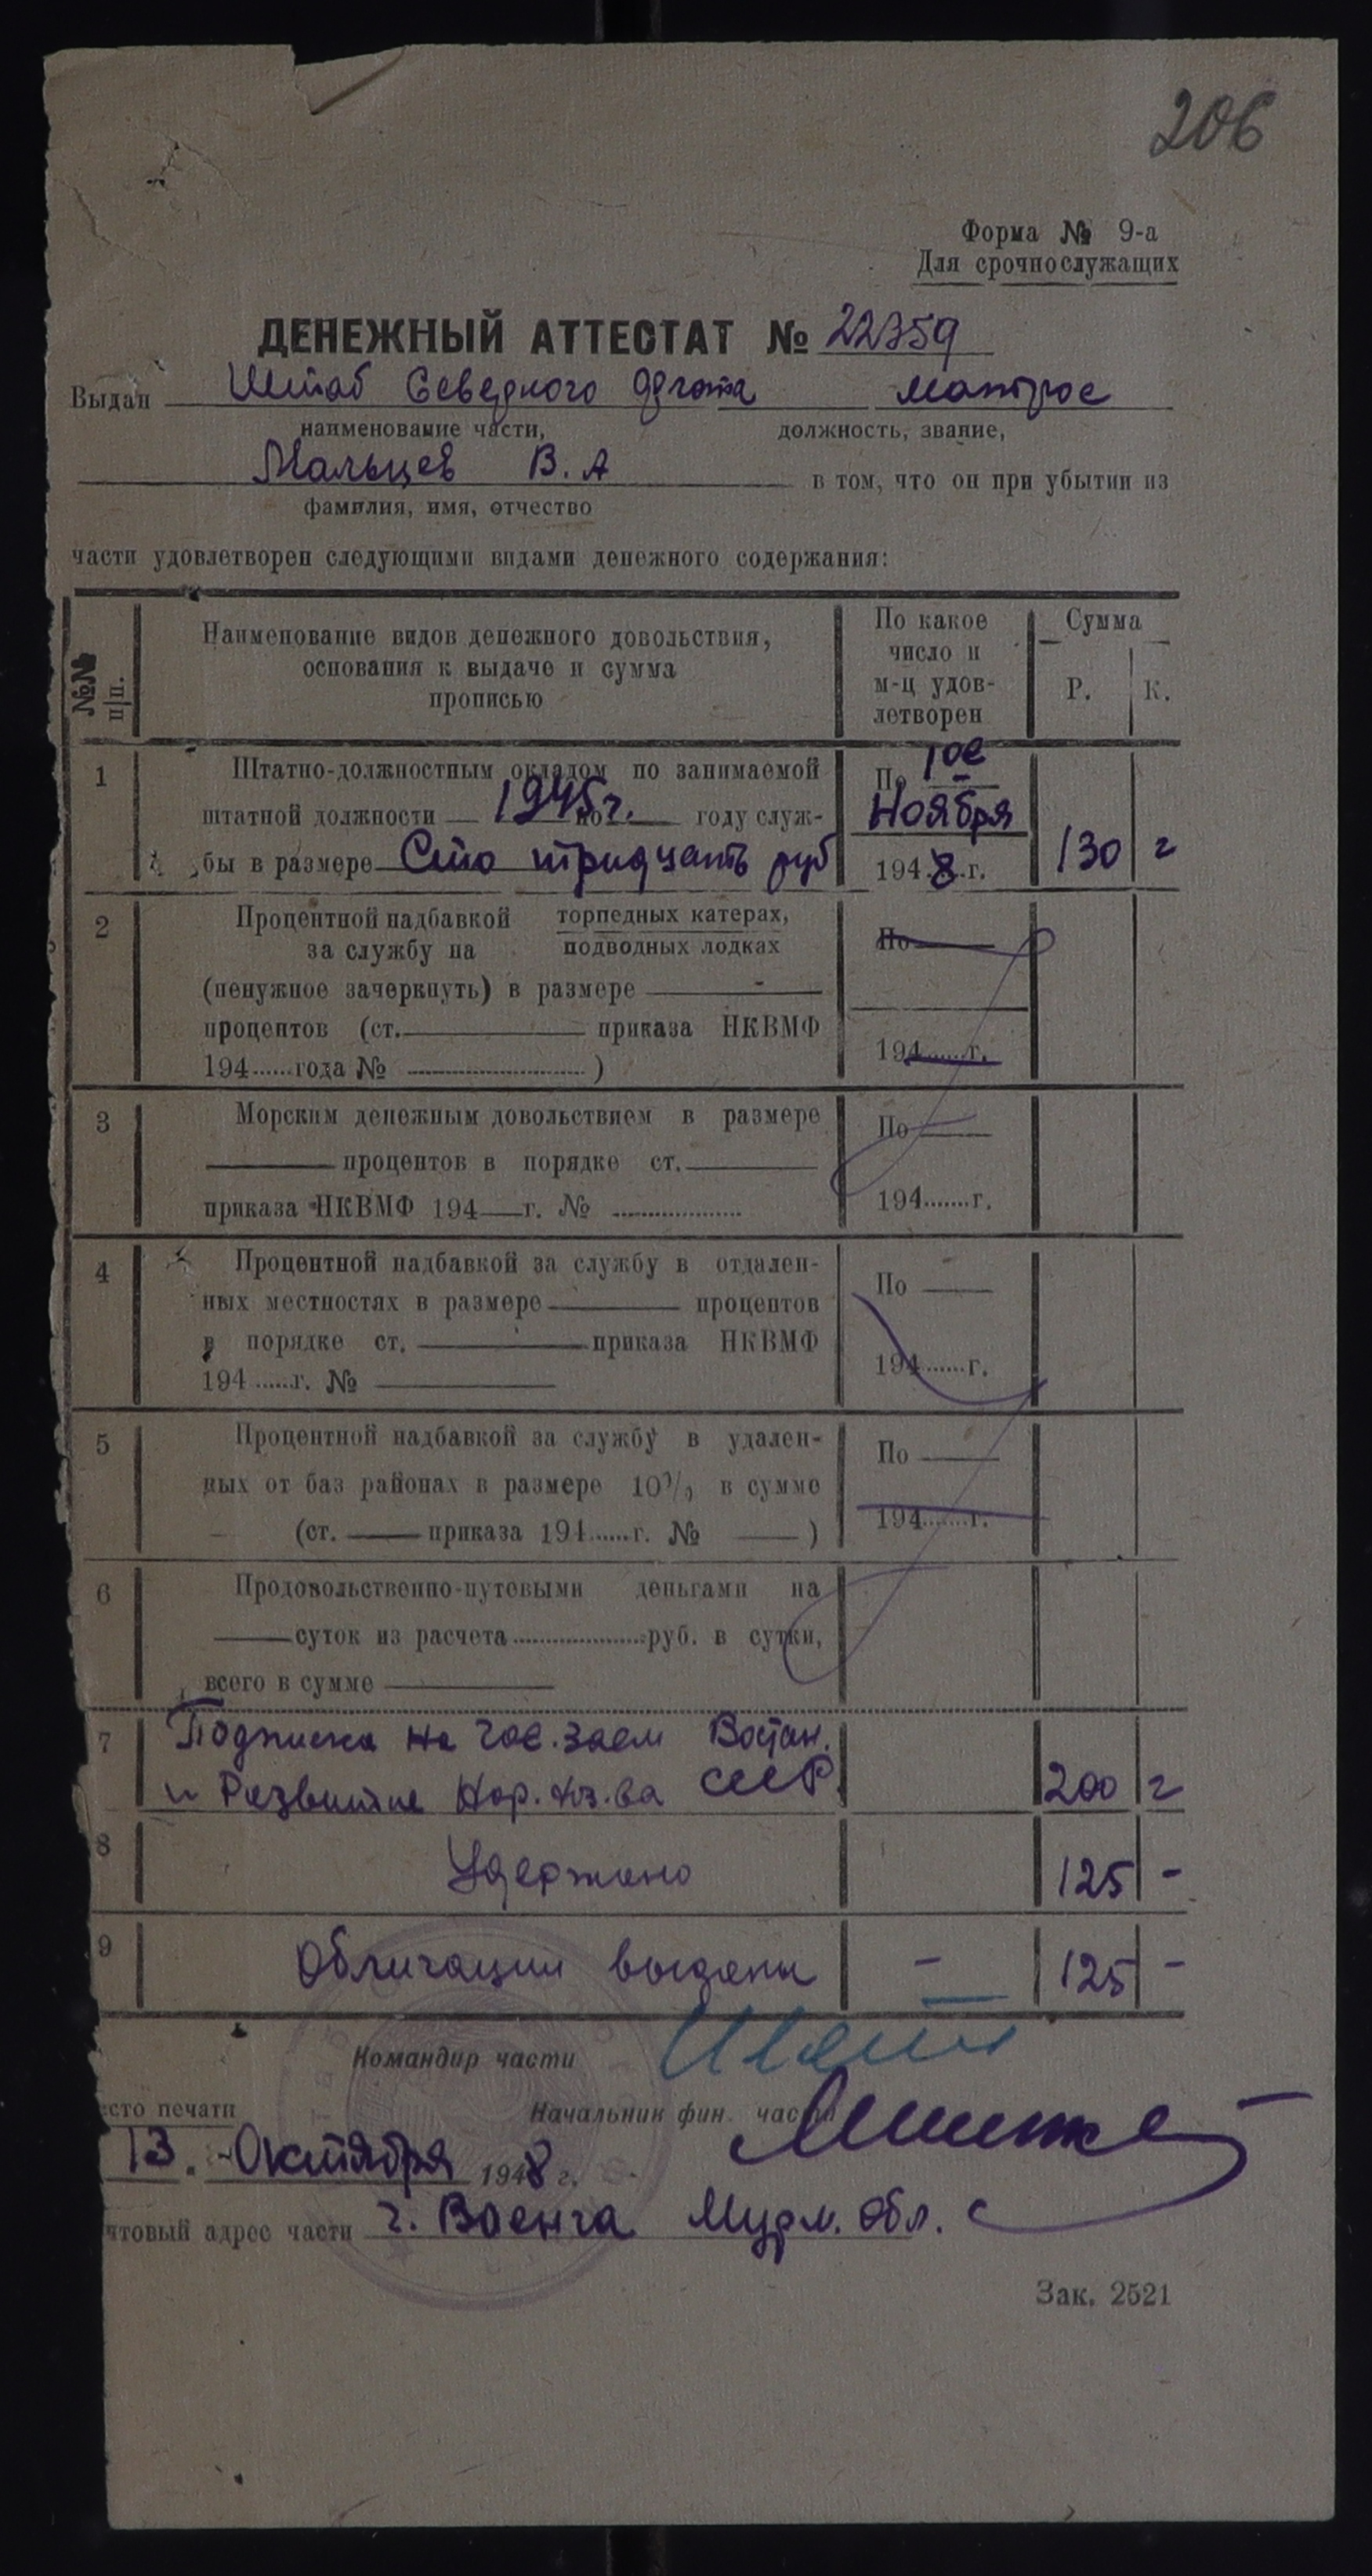 206
Форма № 9-а
Для срочнослужащих
ДЕНЕЖНЫЙ АТТЕСТАТ № 22359
Выдан Штаб Северного флота матрос
наименование части, должность, звание,
Мальцев В. А в том, что он при убытии из
фамилия, имя, отчество
части удовлетворен следующими видами денежного содержания:
№№ п/п. Наименование видов денежного довольствия, основания к выдаче и сумма прописью По какое число и м-ц удов- летворен Сумма Р. К.
1 Штатно-должностным окладом по занимаемой По 1ое
штатной должности 1945г. по году служ- Ноября
бы в размере Сто тридцать руб 1948 г. 130 г
2 Процентной надбавкой торпедных катерах, По
за службу на подводных лодках
(ненужное зачеркнуть) в размере
процентов (ст. приказа НКВМФ 194......г.
194......года № )
3 Морским денежным довольствием в размере По
процентов в порядке ст.
приказа НКВМФ 194 г. № 194.......г.
4 Процентной надбавкой за службу в отдален- По
ных местностях в размере процентов
в порядке ст. приказа НКВМФ 194......г.
194......г. №
5 Процентной надбавкой за службу в удален- По
ных от баз районах в размере 10% в сумме
(ст. приказа 194......г. № ) 194.......г.
6 Продовольственно-путевыми деньгами на
суток из расчета руб. в сутки,
всего в сумме
7 Подписка на гос. заем Востан.
и Развитие Нар. хоз.-ва СССР. 200 г
8 Удержано 125 -
9 Облигации выданы - 125 -
Командир части
есто печати Начальник фин. части
13. Октября 1948 г.
чтовый адрес части г. Ваенга Мурм. обл.
Зак. 2521